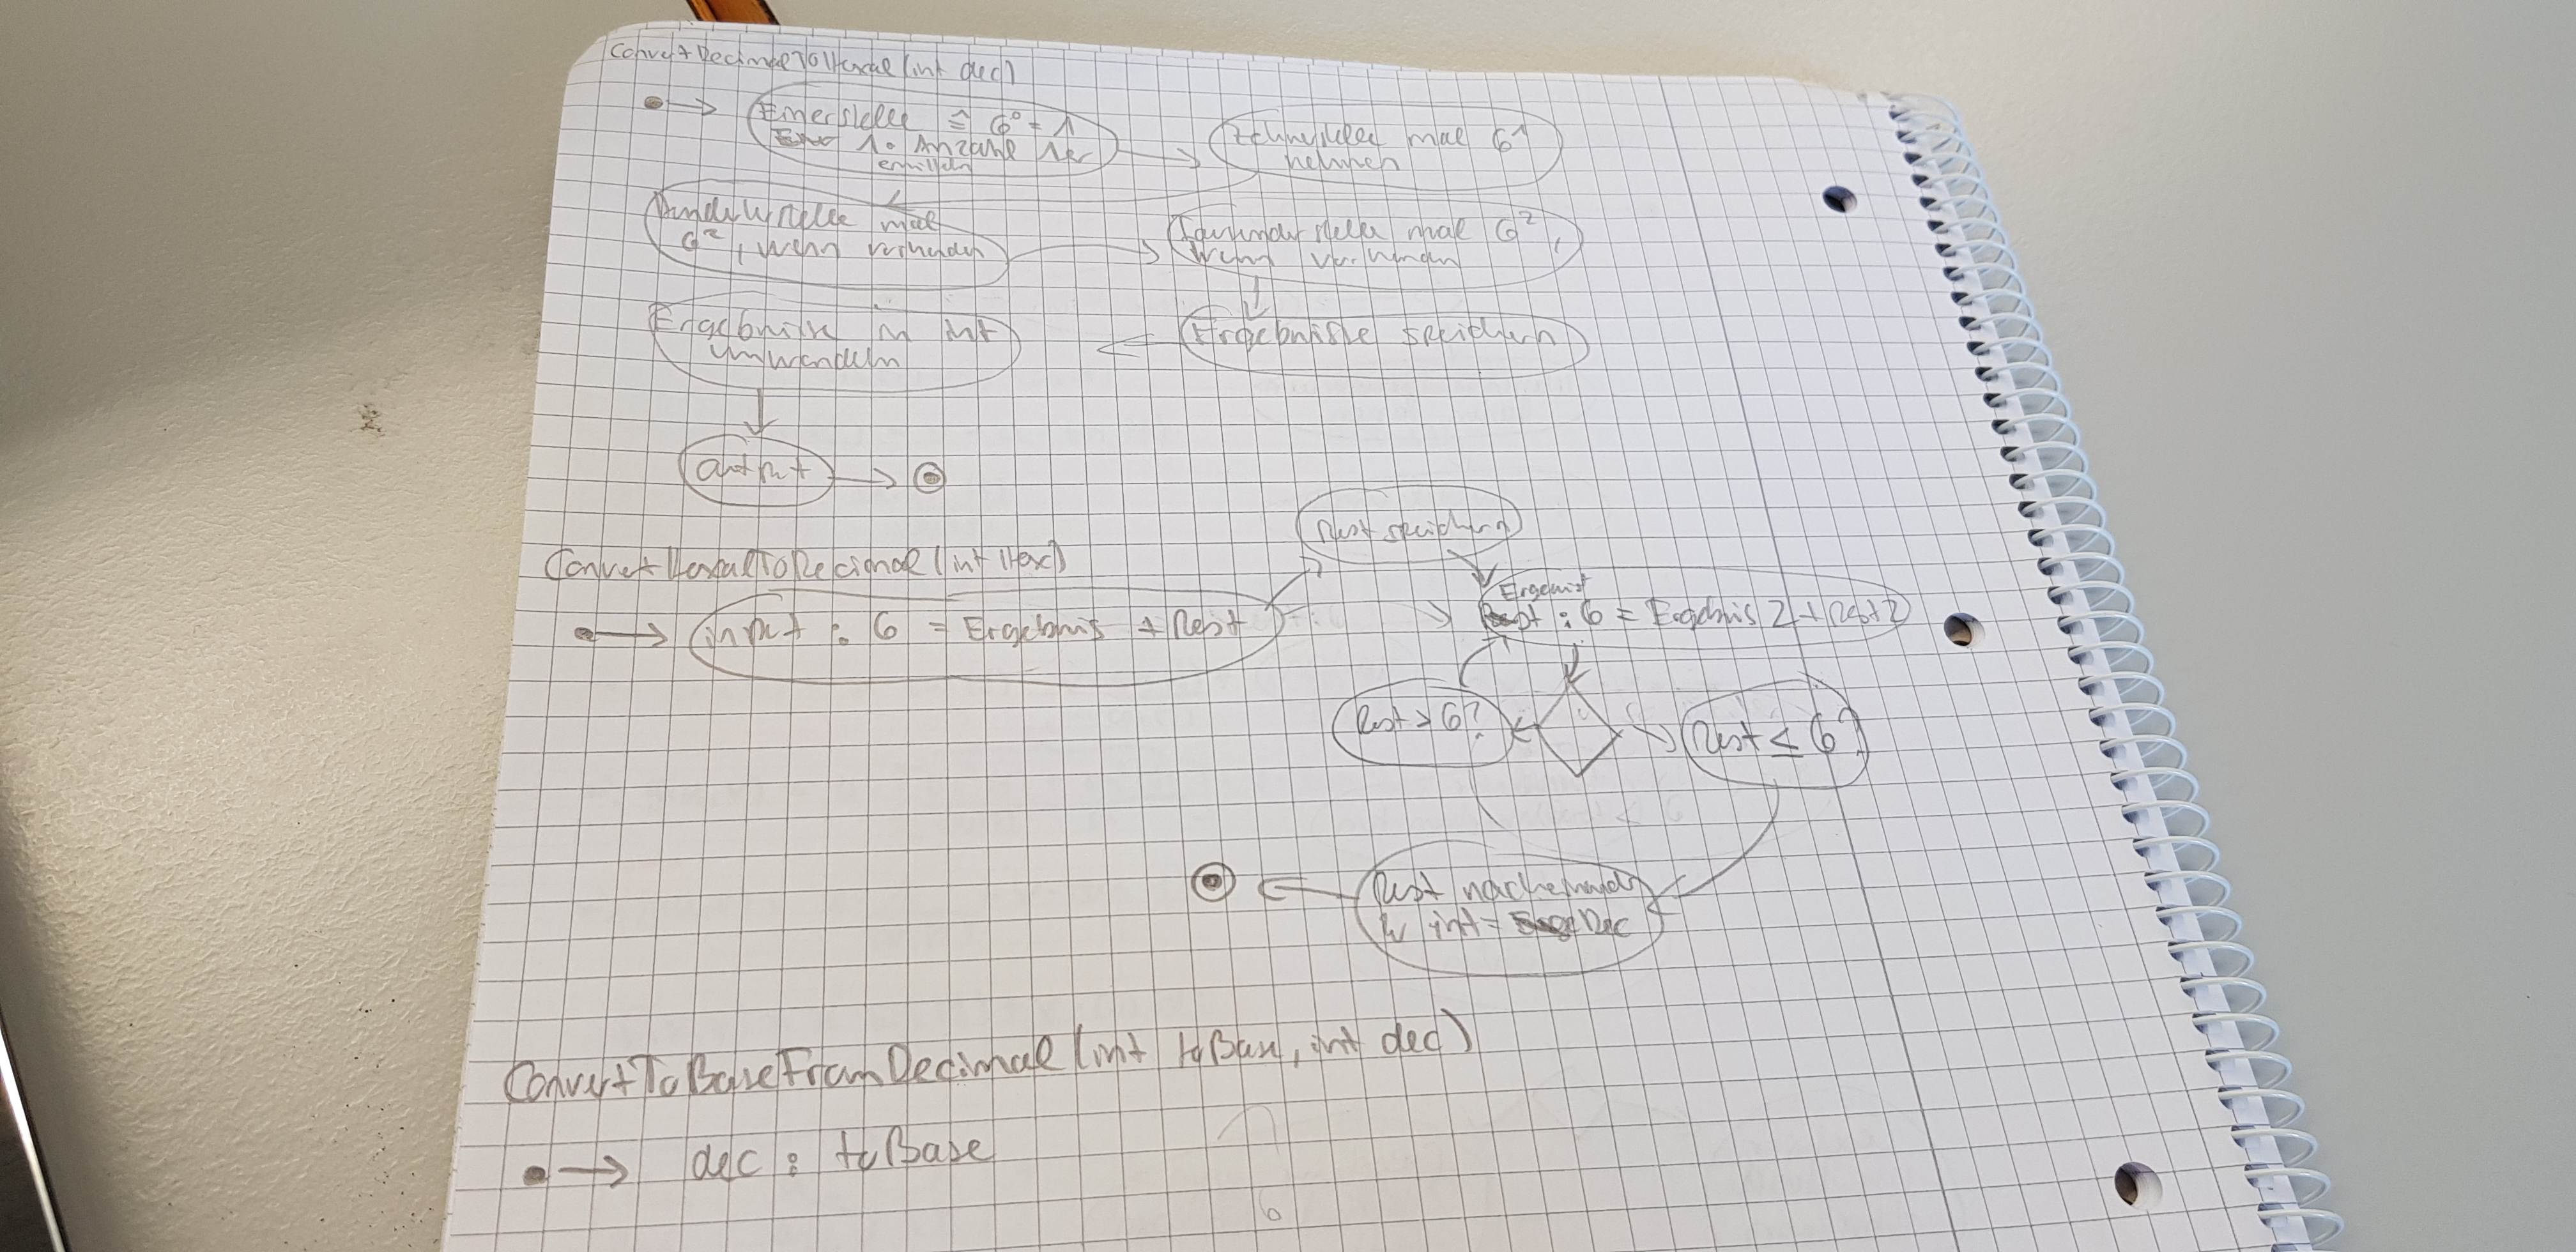 ConvertDecimalToHexal (int dec)
Einerstelle ≙ 6⁰ = 1
1. Anzahl 1er
ermitteln
Zehnerstelle mal 6¹
nehmen
Hunderterstelle mal
6², wenn vorhanden
Tausenderstelle mal 6²,
wenn vorhanden
Ergebnisse speichern
Ergebnisse in int
umwandeln
output
ConvertHexalToDecimal (int Hex)
input : 6 = Ergebnis + Rest
Rest speichern
Ergebnis
: 6 = Ergebnis 2 + Rest 2
Rest > 6?
Rest ≤ 6?
Rest nacheinander
int = Dec
ConvertToBaseFromDecimal (int toBase, int dec)
dec : toBase
6